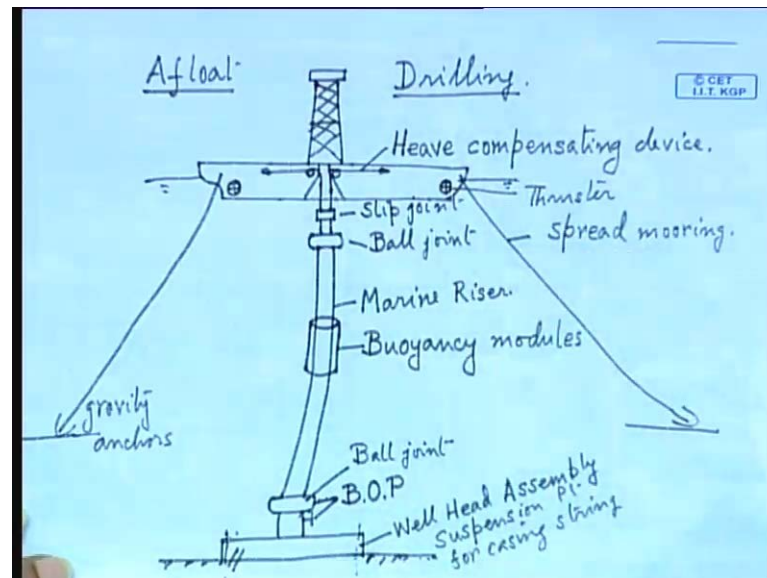 Afloat Drilling.
© CET
I.I.T. KGP
Heave compensating device.
Thruster
Slip joint
spread mooring.
Ball joint
Marine Riser.
Buoyancy modules
gravity
anchors
Ball joint
B.O.P
Well Head Assembly
Suspension Pt.
for casing string